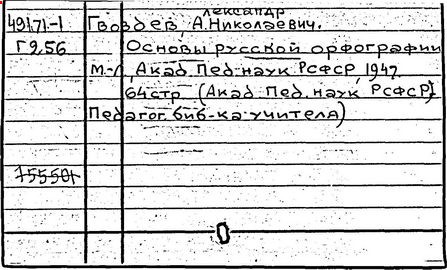 49171-1 Гвоздев, Александр А.Николаевич.
Г256 Основы русской орфографии
М.-Л, Акад. Пед. наук РСФСР, 1947.
64 стр. (Акад. Пед. наук РСФСР].
Педагог. биб-ка учителя)
75550г